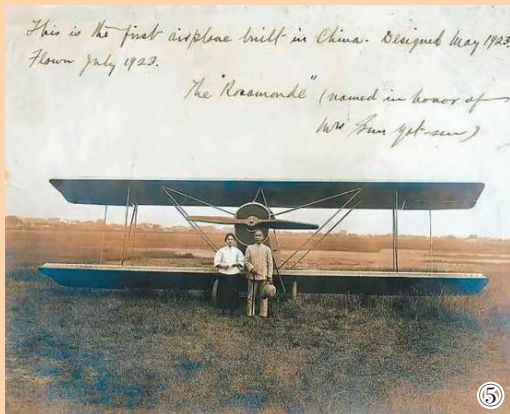 This is the first airplane built in China. Designed May 1923.
Flown July 1923.
The "Rosamonde" (named in honor of
Mrs Sun Yat-sen)
⑤